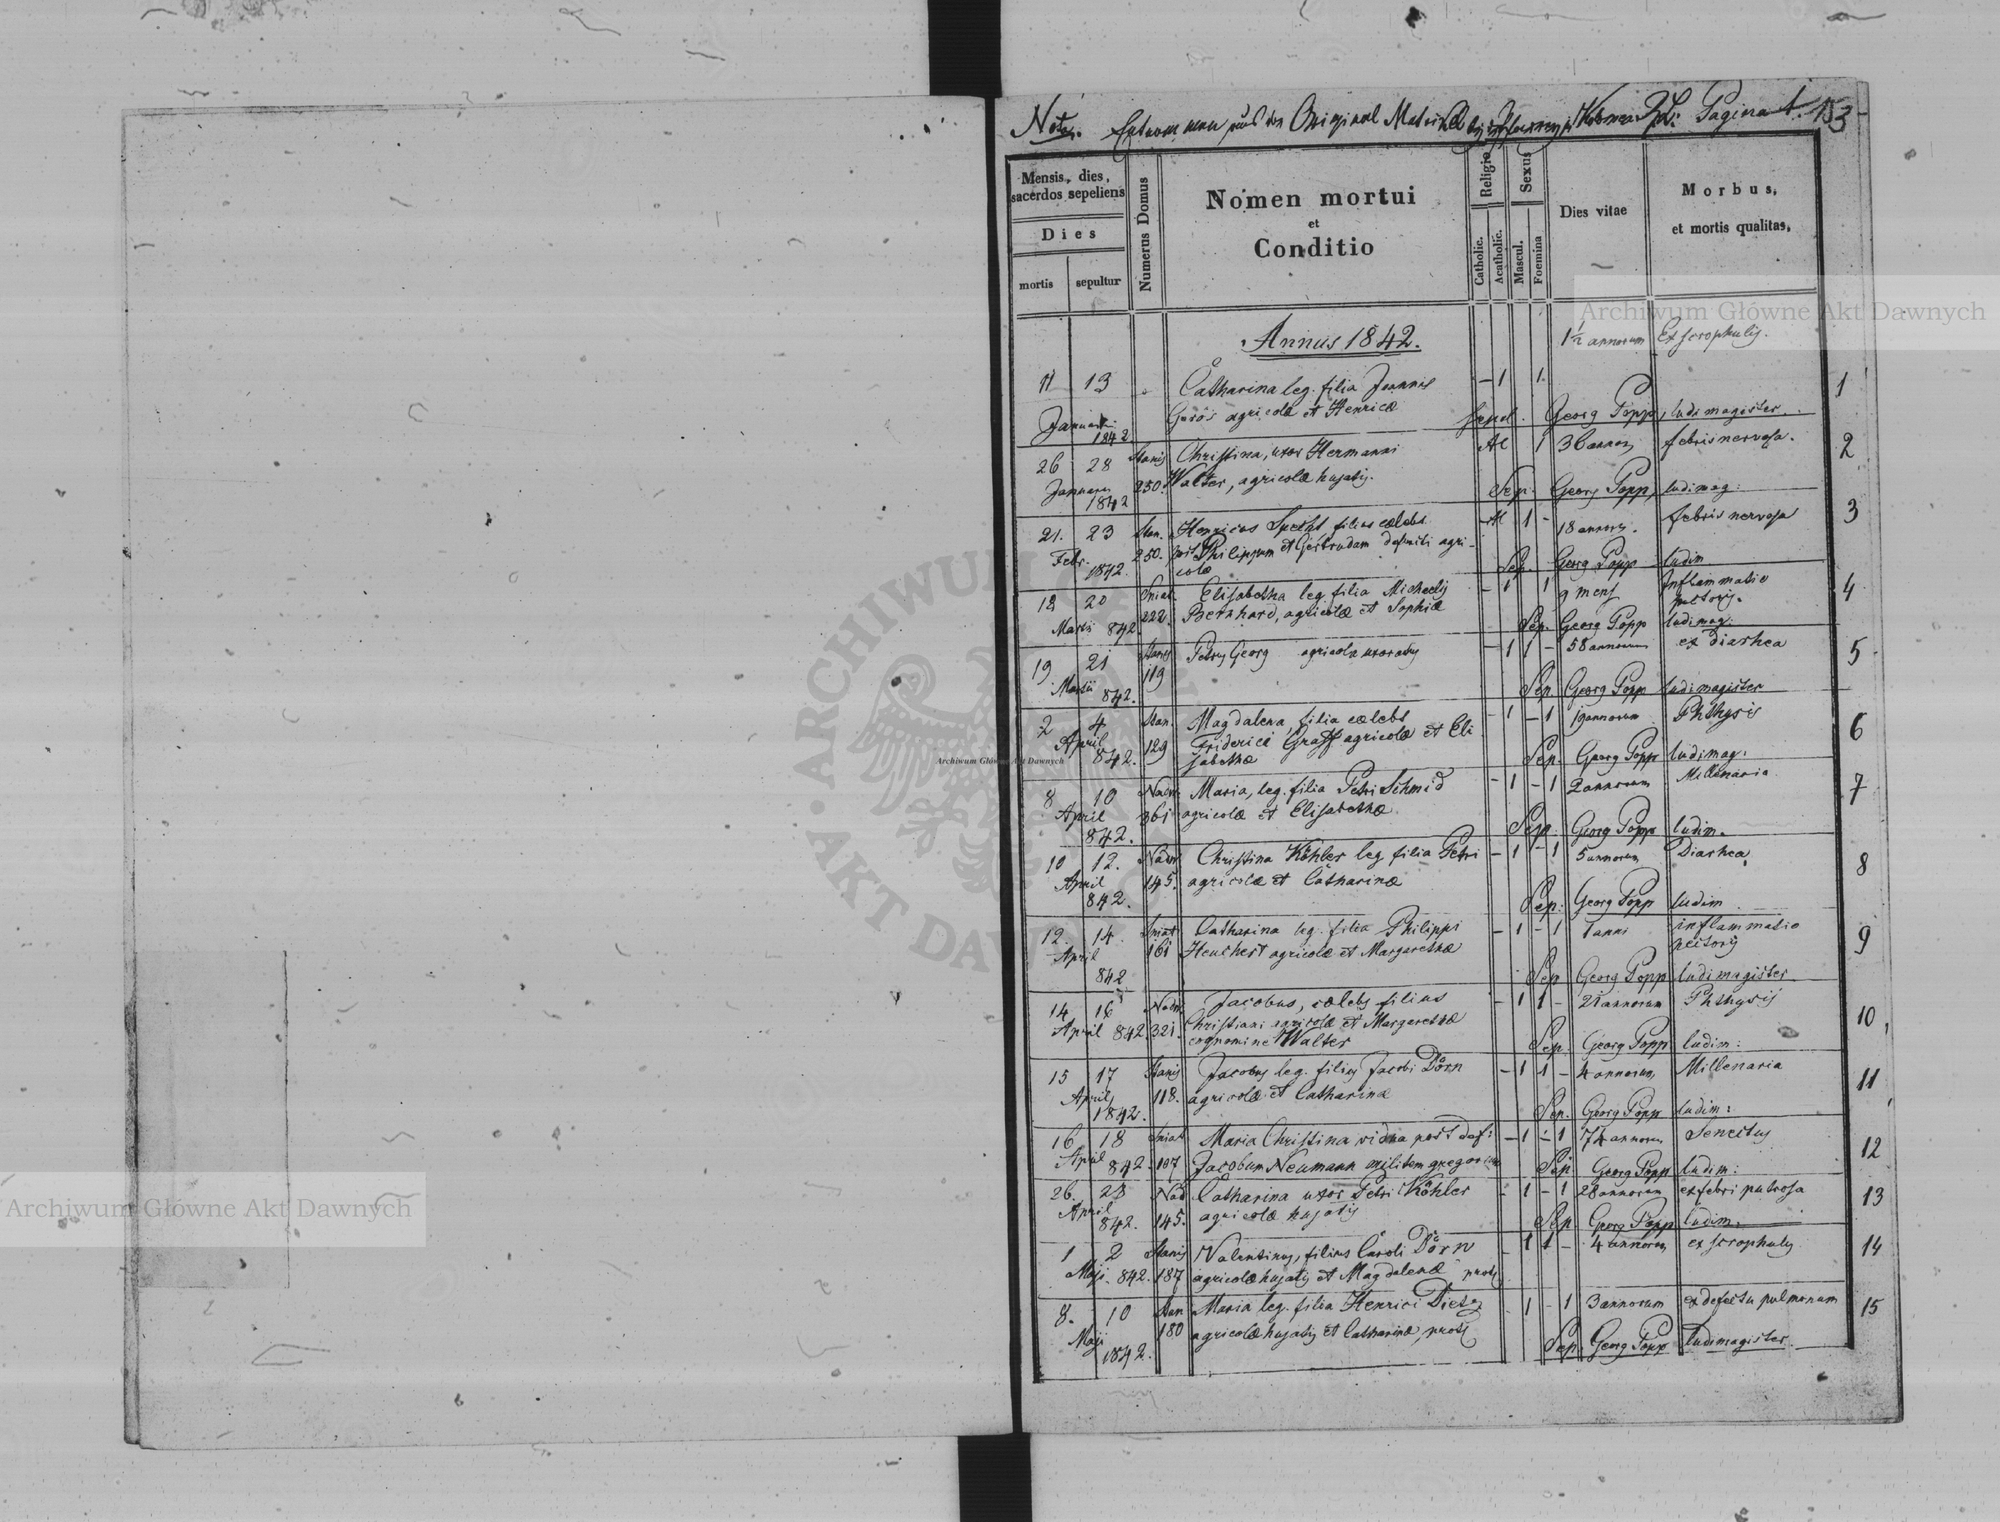 Nota. Original Pagina 1. 153
Mensis, dies,
sacerdos sepeliens
Dies
mortis
sepultur
Numerus Domus
Nomen mortui
et
Conditio
Religio
Catholic.
Acatholic.
Sexus
Mascul.
Foemina
Dies vitae
Morbus,
et mortis qualitas.
Annus 1842.
1½ annorum Ex scrophulis.
11 13 Catharina leg. filia Joannis – 1 1. 1
Januarii agricolæ et Henricæ Sepel. Georg Popp, ludimagister.
1842
26 28 Stanis Christina, uxor Hermanni Ac 1 36 annor febris nervosa. 2
Januarii 250. Walter, agricolæ hujatis. Sep. Georg Popp, ludimag:
1842
21. 23 Stan. Henricus Specht filius cælebs Ac 1 - 18 annor. febris nervosa 3
Febr. 250. post Philippum et Gertrudam defuncti agri-
1842. colæ Sep. Georg Popp ludim
18 20 Sniat. Elisabetha leg. filia Michaelis - 1 1 9 mens inflammatio 4
pectoris.
Martii 842. 222. Bernhard, agricolæ et Sophiæ Sep. Georg Popp ludimag.
19 21 Stanis Petrus Georg agricola uxoratus - 1 1 - 58 annorum ex diarhea 5
Martii 842. 119 Sep. Georg Popp ludimagister
2 4 Stan. Magdalena, filia cælebs - 1 - 1 19 annorum Phthysis 6
April 842. 129 Friderici Graff agricolæ et Eli
sabethæ Sep. Georg Popp ludimag.
8 10 Nadw. Maria, leg. filia Petri Schmid - 1 - 1 2 annorum Millenaria 7
April 361 agricolæ et Elisabethæ
842. Sep. Georg Popp ludim.
10 12. Nadw Christina Köhler leg filia Petri - 1 - 1 5 annorum Diarhea 8
April 145. agricolæ et Catharinæ
842. Sep: Georg Popp ludim
12. 14. Sniat Catharina leg. filia Philippi - 1 - 1 1 anni inflammatio 9
pectoris
April 161 Heuchert agricolæ et Margarethæ
842 Sep Georg Popp ludimagister
14 16 Nadw Jacobus, cælebs filius - 1 1 - 21 annorum Phthysis 10
April 842. 321. Christiani agricolæ et Margarethæ
cognomine Walter Sep. Georg Popp ludim:
15 17 Stanis Jacobus leg. filius Jacobi Dörn - 1 1 - 4 annorum Millenaria 11
April 118. agricolæ et Catharinæ
1842. Sep. Georg Popp ludim:
16 18 Sniat Maria Christina vidua post def: - 1 - 1 74 annorum Senectus 12
April 842. 107 Jacobum Neumann militem gregorium Sep. Georg Popp ludim:
26. 28 Nad Catharina uxor Petri Köhler - 1 - 1 28 annorum ex febri putrosa 13
April 842. 145. agricolæ hujatis Sep Georg Popp ludim.
1 2 Stanis Valentinus, filius Caroli Dörn - 1 1 - 4 annorum ex scrophulis 14
Maji 842. 187 agricolæ hujatis et Magdalenæ
8. 10 Stan Maria leg. filia Henrici Dietz - 1 - 1 3 annorum ex defectu pulmonum 15
Maji 180 agricolæ hujatis et Catharinæ,
1842. Sep. Georg Popp ludimagister.
Archiwum Główne Akt Dawnych
Archiwum Główne Akt Dawnych
Archiwum Główne Akt Dawnych